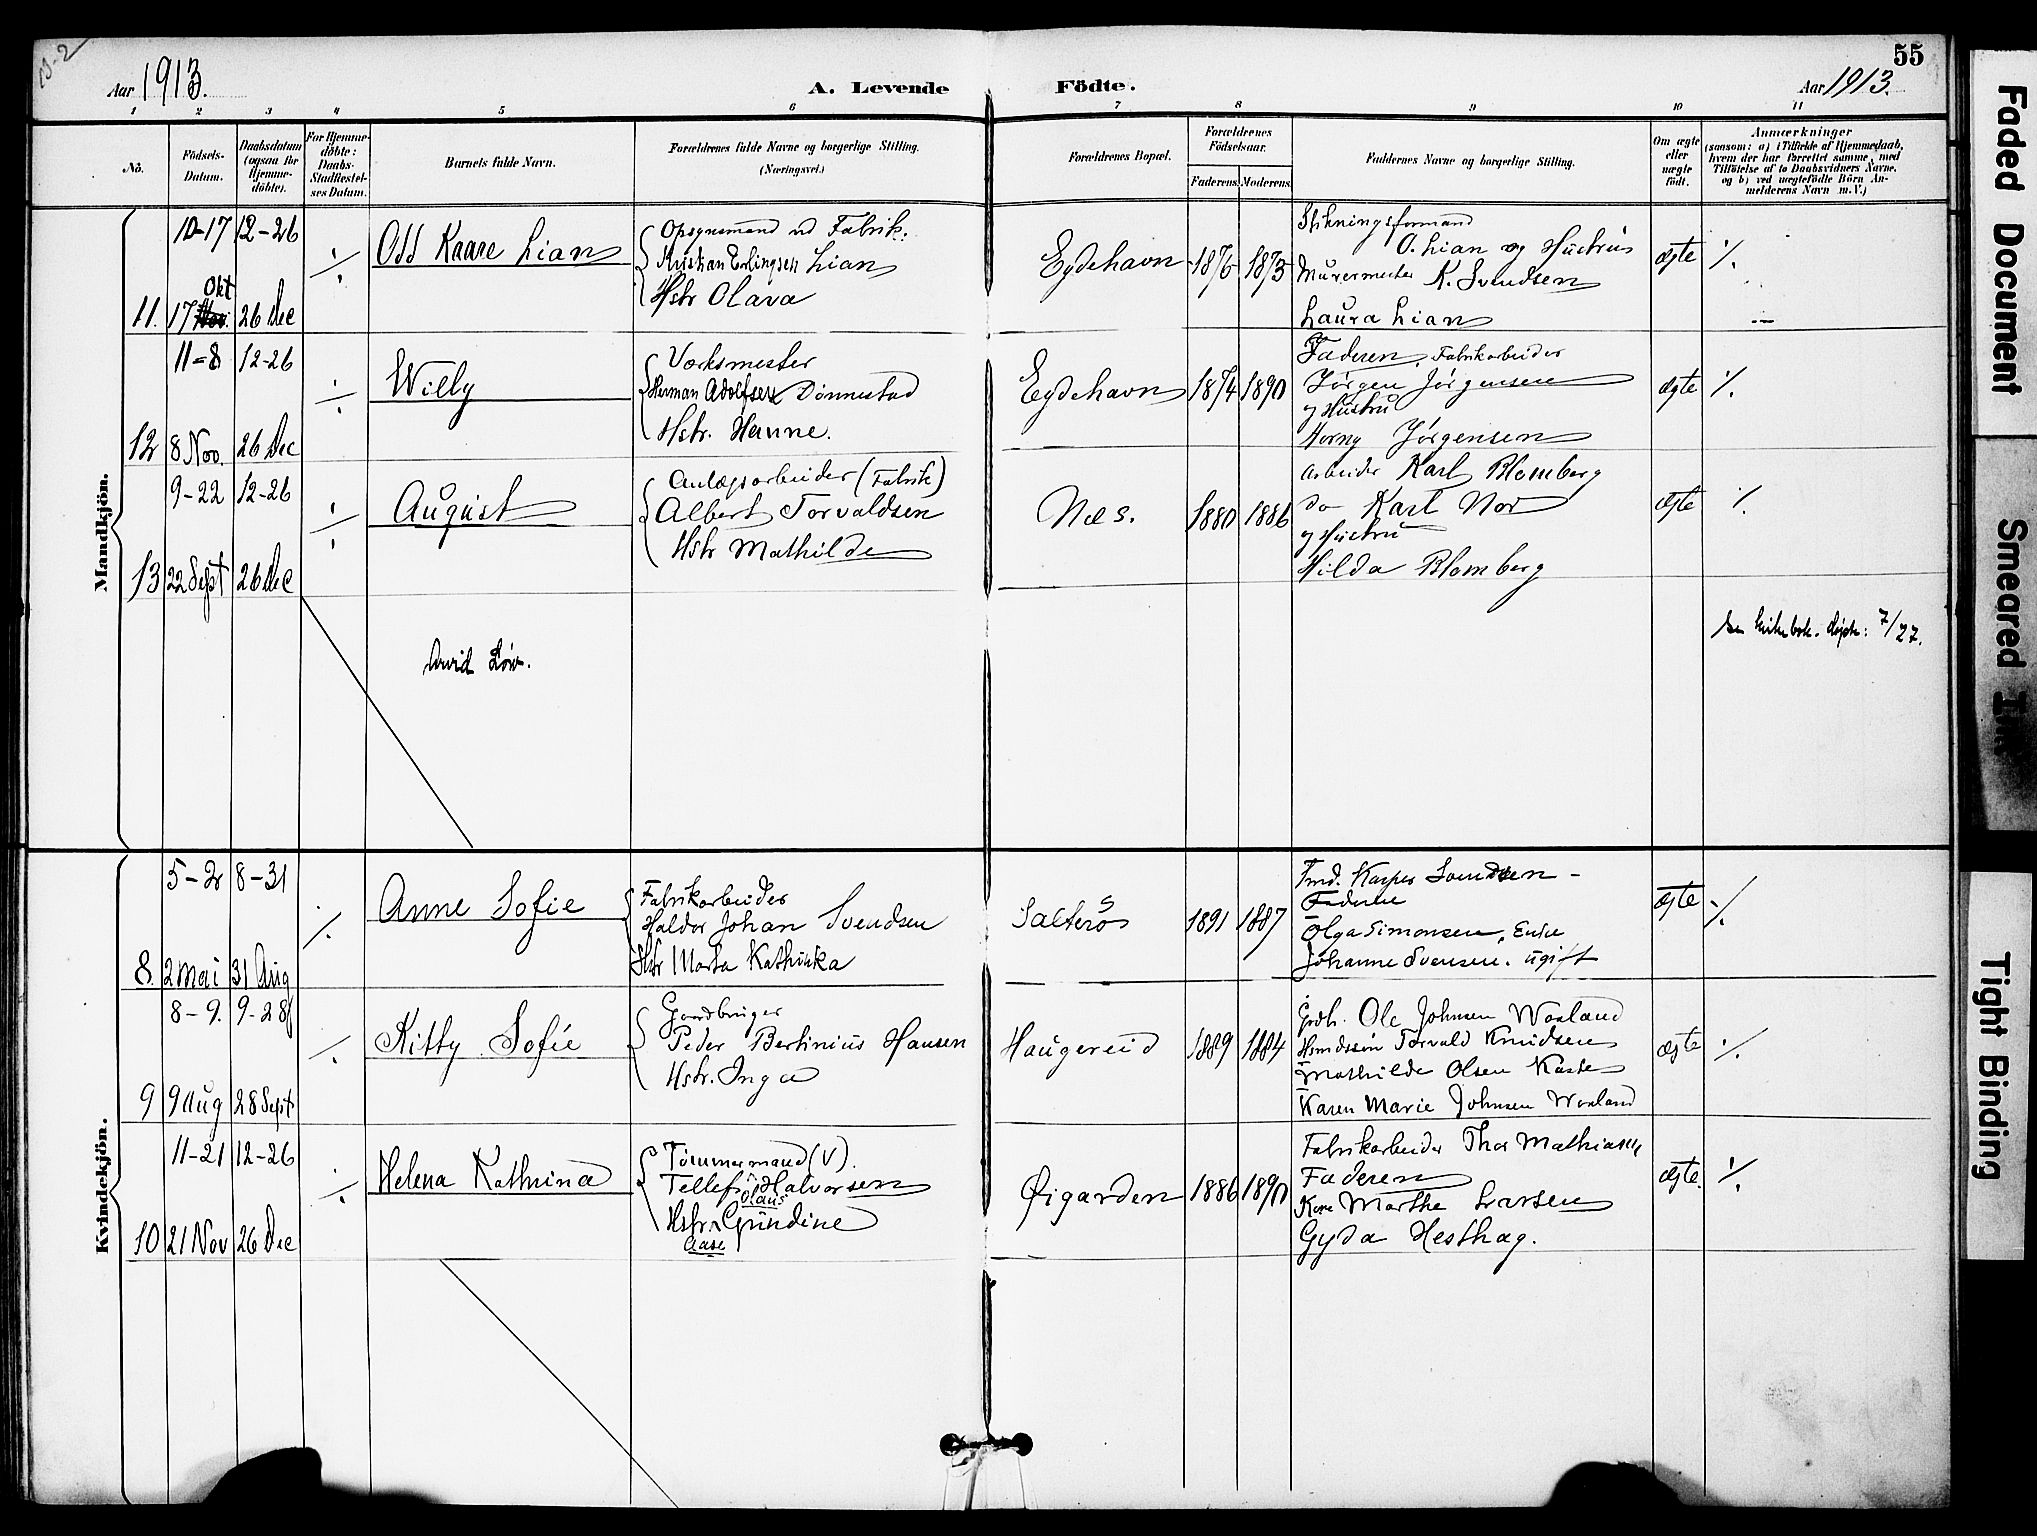 13-2
55
Aar 1913.
A. Levende Födte.
Aar 1913.
1 2 3 4 5 6 7 8 9 10 11
No.
Födsels-
Datum.
Daabsdatum
(ogsaa for
Hjemme-
döbte).
For Hjemme-
döbte:
Daabs-
Stadfestel-
ses Datum.
Barnets fulde Navn.
Forældrenes fulde Navne og borgerlige Stilling.
(Næringsvei.)
Forældrenes Bopæl.
Forældrenes
Födselsaar.
Faderens. Moderens.
Faddernes Navne og borgerlige Stilling.
Om ægte
eller
uægte
födt.
Anmærkninger
(saasom: a) i Tilfælde af Hjemmedaab,
hvem der har forrettet samme, med
Tilföielse af to Daabsvidners Navne,
og b) ved uægtefödte Börn An-
melderens Navn m. V.)
Mandkjön.
10-17 12-26
11. 17 Okt 26 Dec
÷
Odd Kaare Lian
Opsynsmand ved Fabrik.
Kristian Erlingsen Lian
Hstr Olava
Eydehavn
1876 1873
Stikningsformand
O. Lian og Hustru
Murermester K. Svendsen
Laura Lian
ægte
٪
11-8 12-26
12 8 Nov. 26 Dec
÷
Willy
Værksmester
Herman Adolfsen Dönnestad
Hstr. Hanne.
Eydehavn
1874 1890
Faderen, Fabrikarbeider
Jørgen Jørgensen
og Hustru
Horny Jørgensen
ægte
٪
9-22 12-26
13 22 Sept 26 Dec
÷
August
Anlægsarbeider (Fabrik)
Albert Torvaldsen
Hstr Mathilde
Næs.
1880 1886
Arbeider Karl Blomberg
do Karl Nor
og Hustru
Hilda Blomberg
ægte
٪
Arvid Löv.
se kirkebok. døpte: 7/27.
Kvindekjön.
5-2 8-31
8. 2 Mai 31 Aug
÷
Anne Sofie
Fabrikarbeider
Haldor Johan Svendsen
Hstr Marta Kathinka
Salterös
1891 1887
Fmd. Kasper Svendsen -
Faderen
Olga Simonsen, Enke
Johanne Svensen. ugift
ægte
٪
8-9. 9-28
9 9 Aug 28 Sept
÷
Kitty Sofie
Gaardbruger
Peder Bertinius Hansen
Hstr. Inga
Haugereid
1889 1884
Grdb. Ole Johnsen Woxland
Hmdssön Torvald Knudsen
Mathilde Olsen Kaste
Karen Marie Johnsen Woxland
ægte
٪
11-21 12-26
10 21 Nov 26 Dec
÷
Helena Kathrina
Tömmermand (V).
Tellef Olaus Halvorsen
Hstr. Aase Gundine
Øigarden
1886 1890
Fabrikarbeider Thor Mathiasen
Faderen
Kone Marthe Larsen
Gyda Hesthag.
ægte.
٪
Faded Document
Smeared Ink
Tight Binding